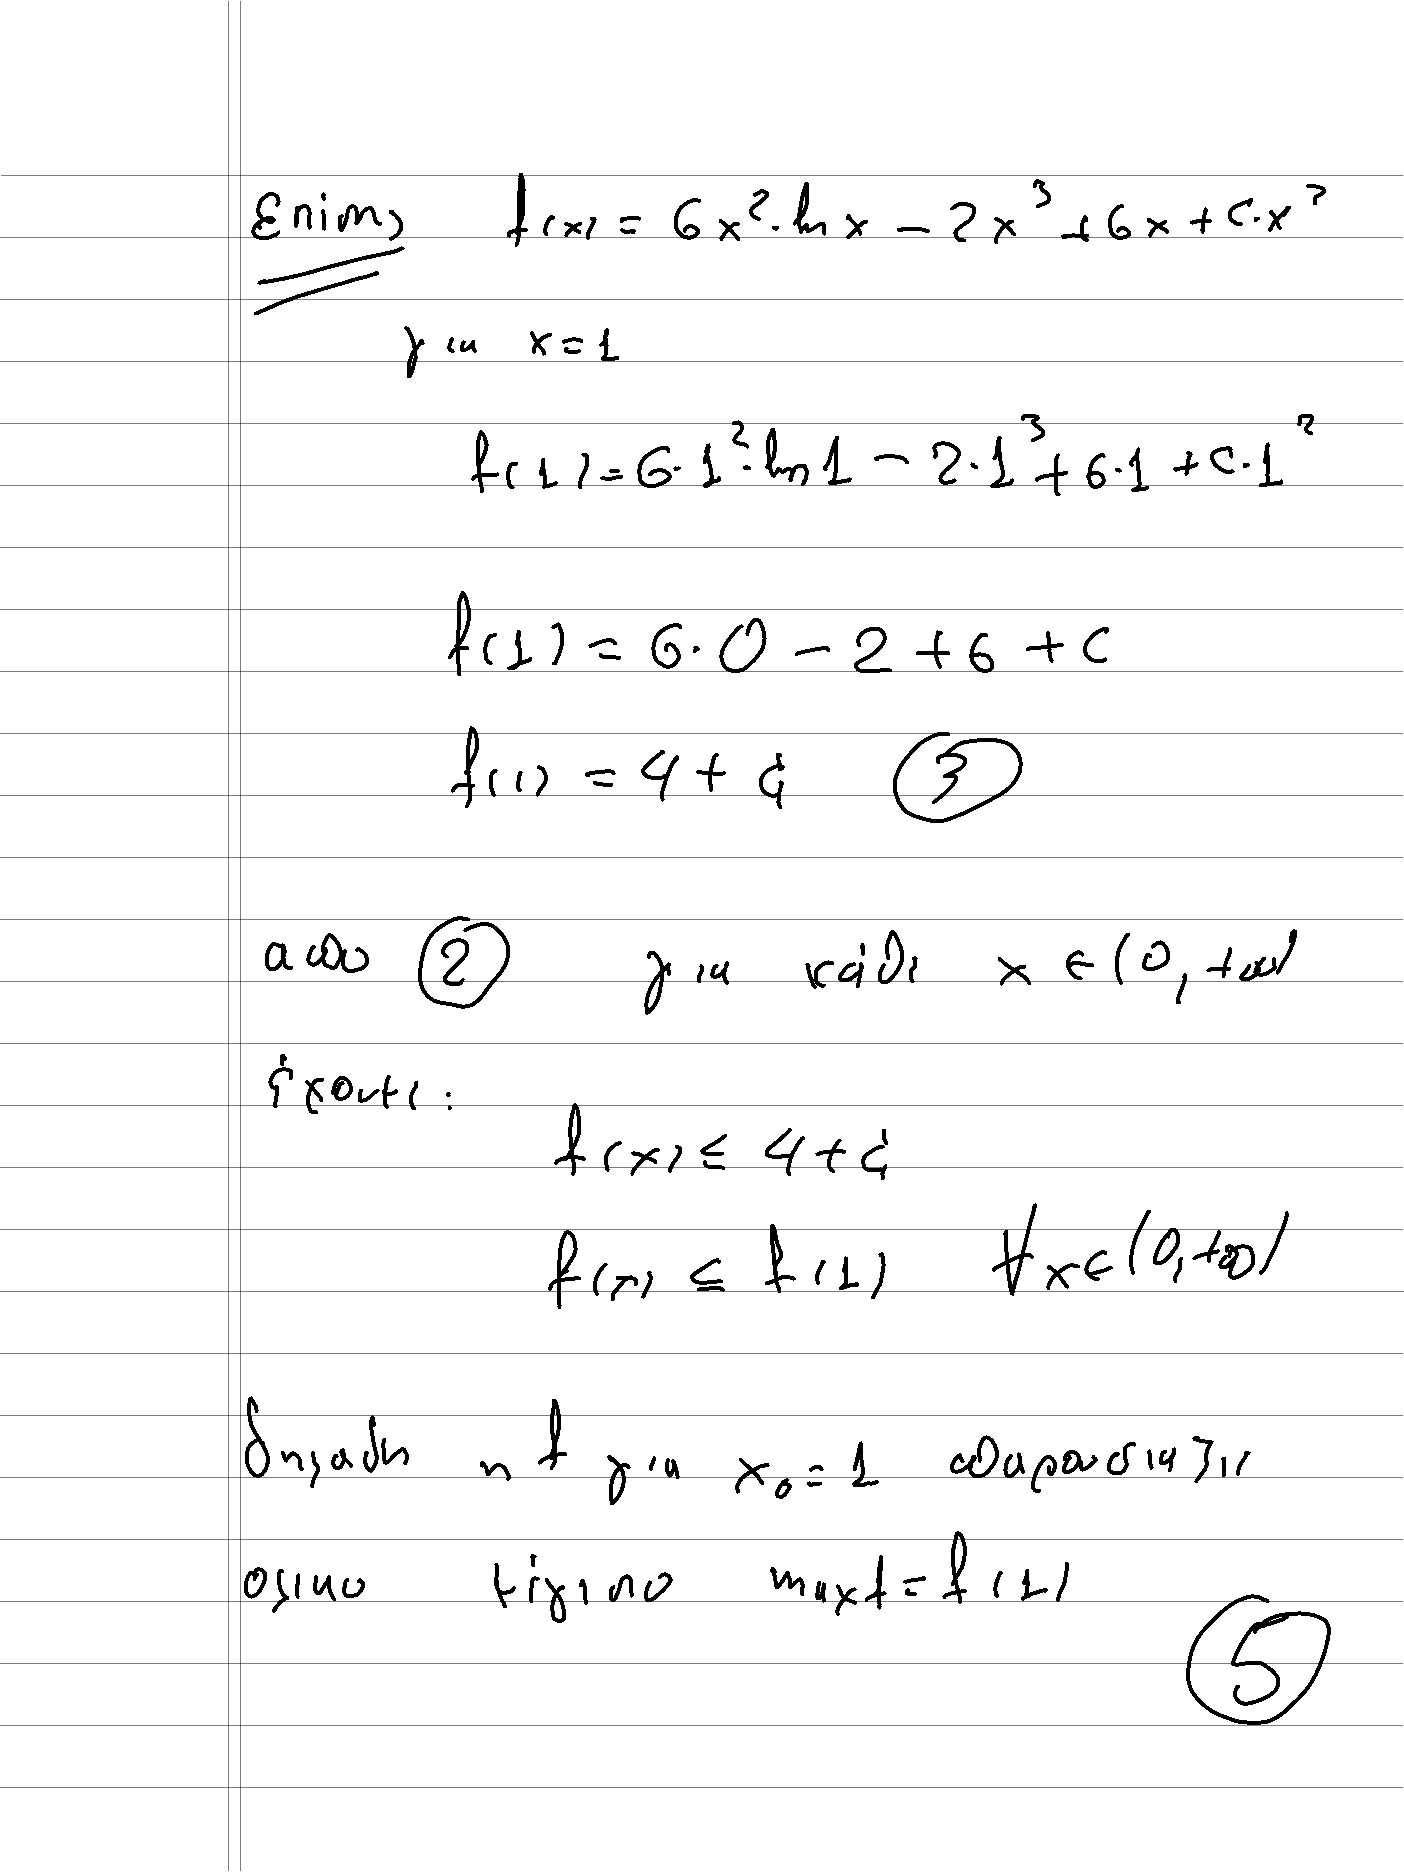 Επίσης f(x) = 6x²·ln x − 2x³ + 6x + c·x²
για x = 1
f(1) = 6·1²·ln 1 − 2·1³ + 6·1 + c·1²
f(1) = 6·0 − 2 + 6 + c
f(1) = 4 + c ③
από ② για κάθε x ∈ (0, +∞)
έχουμε:
f(x) ≤ 4 + c
f(x) ≤ f(1) ∀x ∈ (0, +∞)
δηλαδη η f για x₀ = 1 παρουσιαζει
ολικο μέγιστο max f = f(1)
⑤